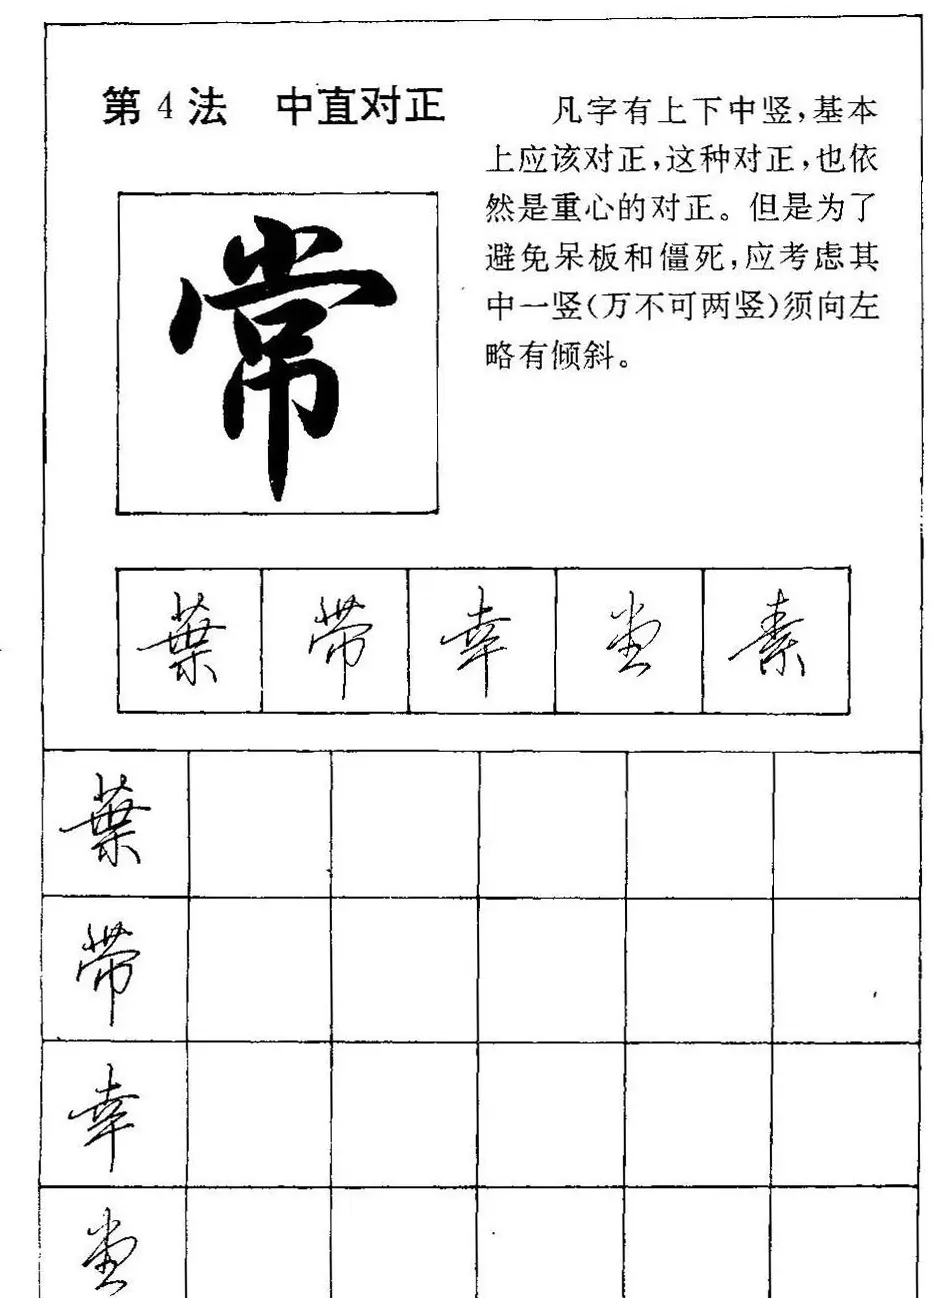 第4法　中直对正
凡字有上下中竖，基本
上应该对正，这种对正，也依
然是重心的对正。但是为了
避免呆板和僵死，应考虑其
中一竖（万不可两竖）须向左
略有倾斜。
常
葉 带 幸 堂 素
葉
带
幸
堂